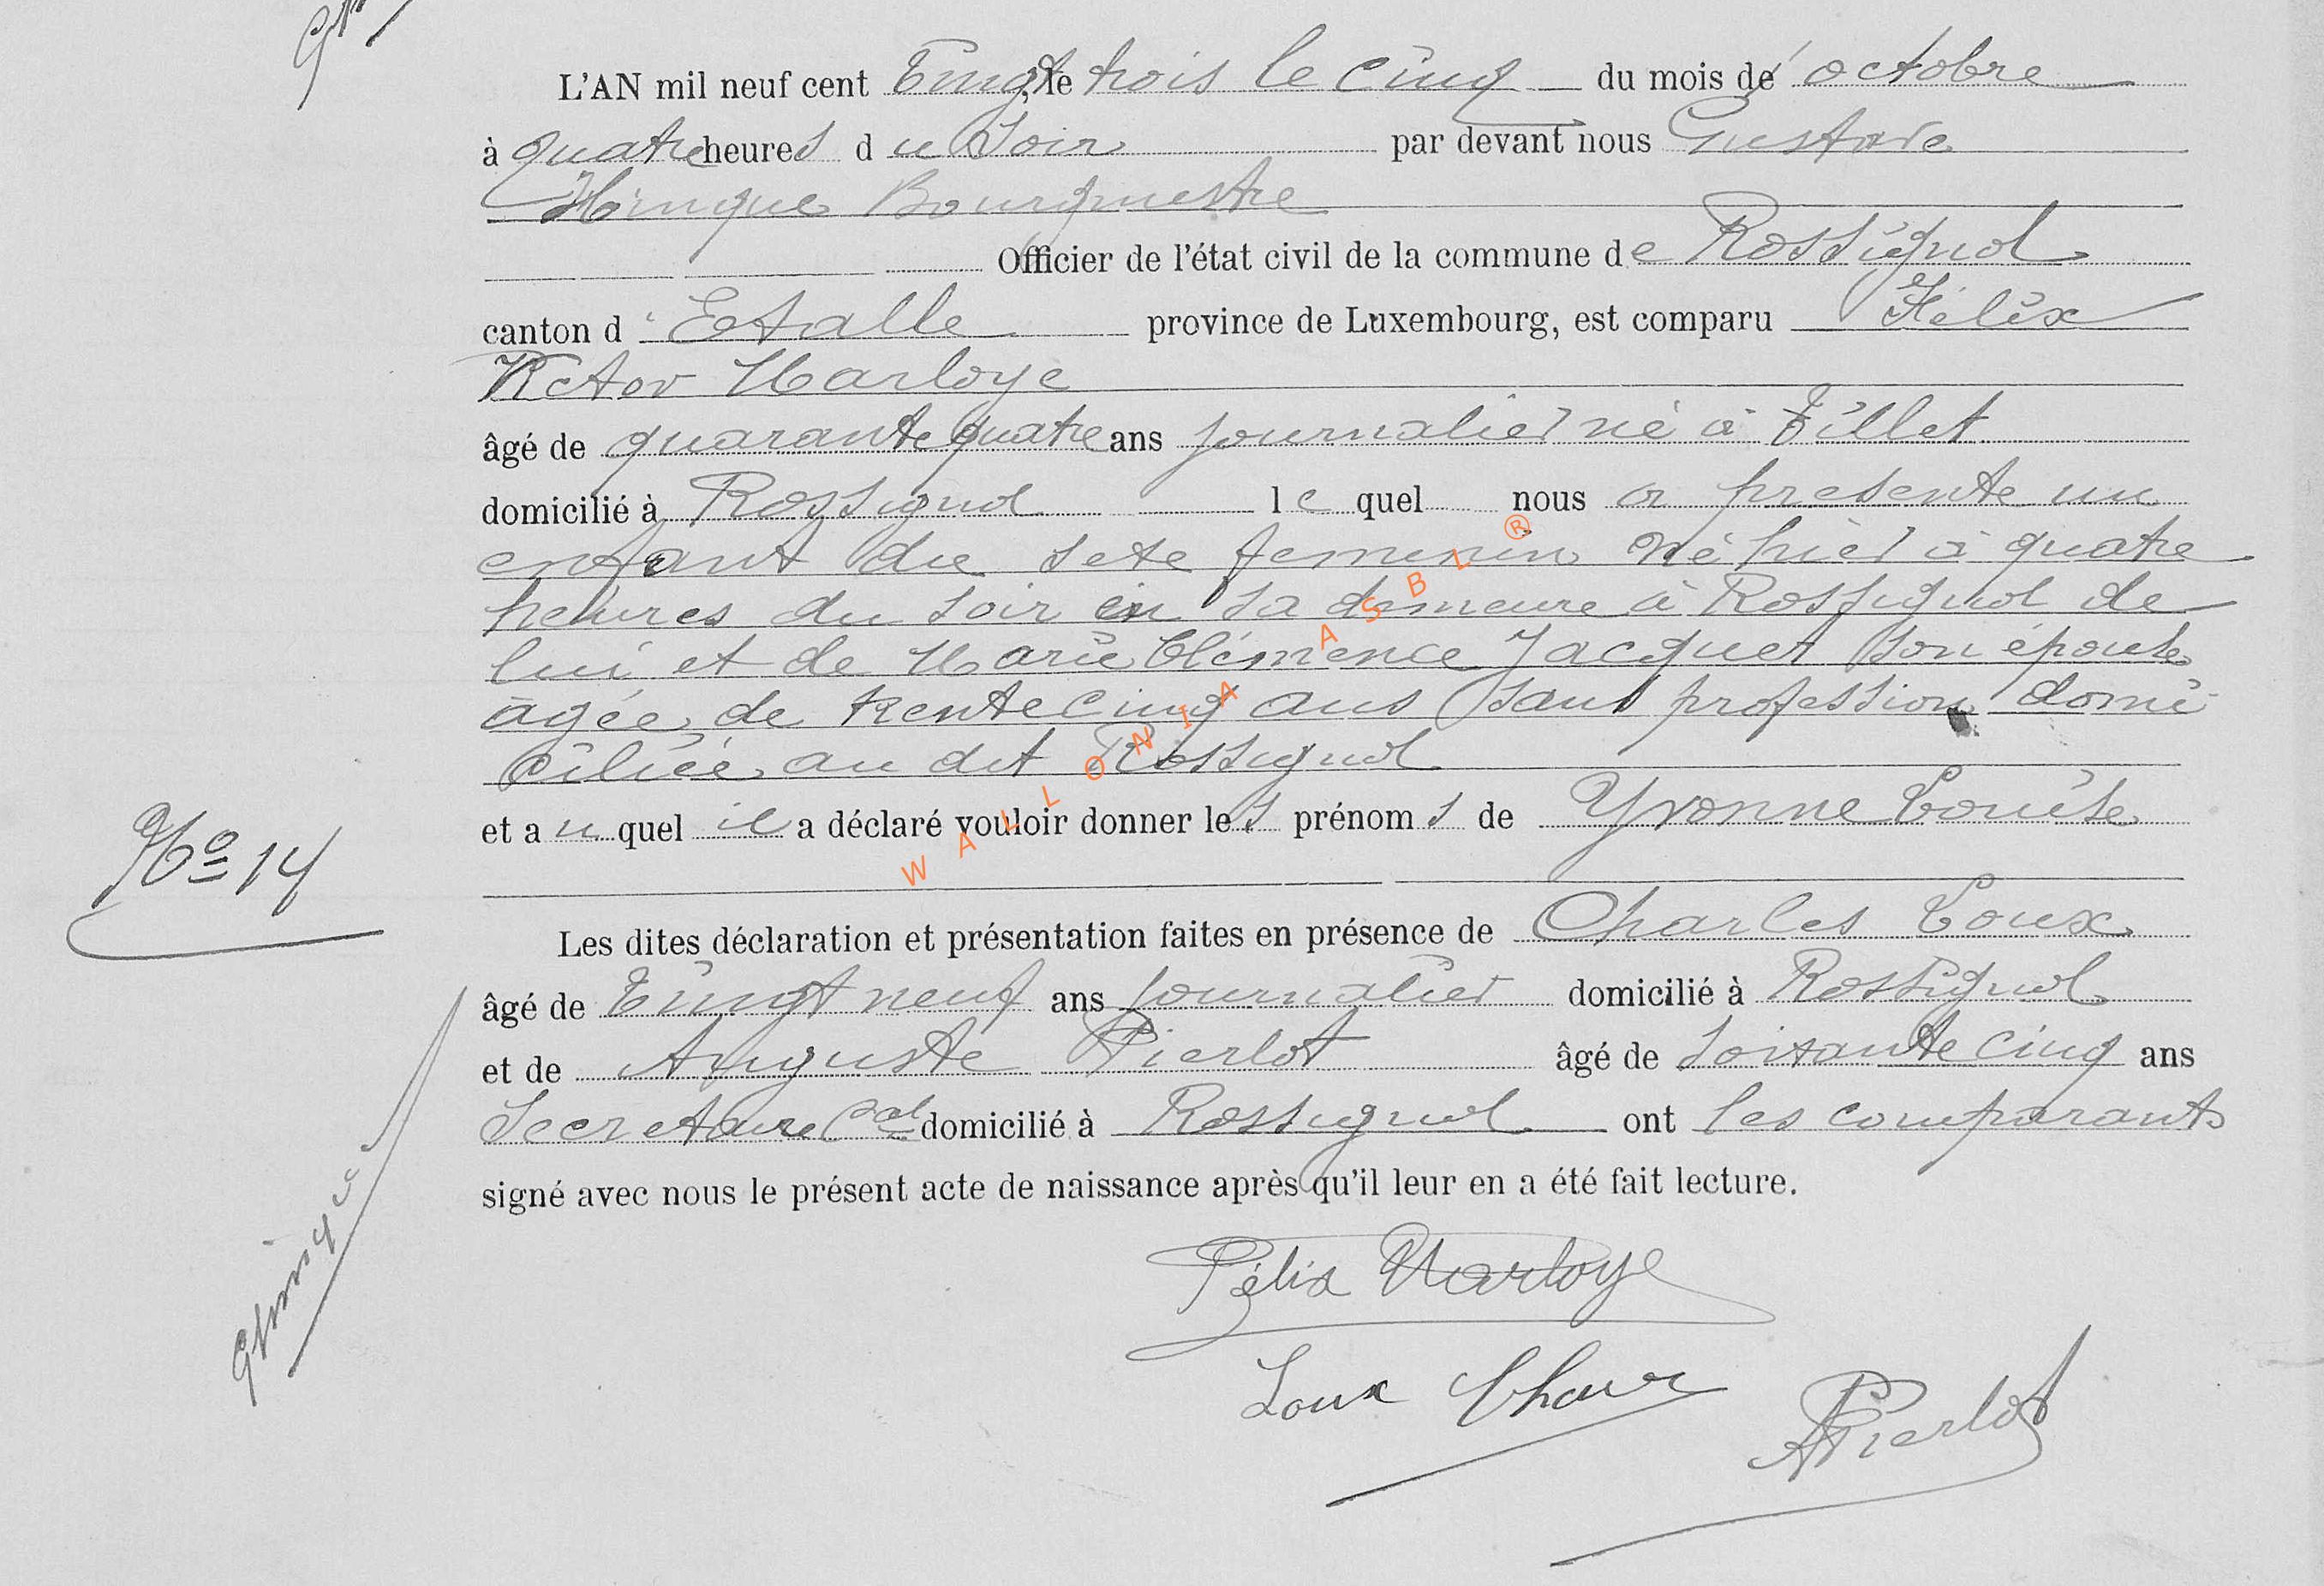 L'AN mil neuf cent Vingt, le trois le cinq du mois de octobre
à quatre heures du Soir par devant nous Gustave
Hinque Bourgmestre
Officier de l'état civil de la commune de Rossignol
canton d'Etalle province de Luxembourg, est comparu Félix
Victor Marloye
âgé de quarante quatre ans journalier né à Tillet
domicilié à Rossignol le quel nous a presente un
enfant du sexe feminin né hier à quatre
heures du soir en sa demeure à Rossignol de
lui et de Marie Clémence Jacquet son épouse
âgée de trente cinq ans sans profession domi
ciliée au dit Rossignol
et au quel il a déclaré vouloir donner les prénoms de Yvonne Louise
No 14
Les dites déclaration et présentation faites en présence de Charles Loux
âgé de Vingt neuf ans journalier domicilié à Rossignol
et de Auguste Pierlot âgé de soixante cinq ans
Secretaire Cal domicilié à Rossignol ont les comparants
signé avec nous le présent acte de naissance après qu'il leur en a été fait lecture.
Félix Marloye
Loux Char
APierlot
GHinque
WALLONIA ASBL ®